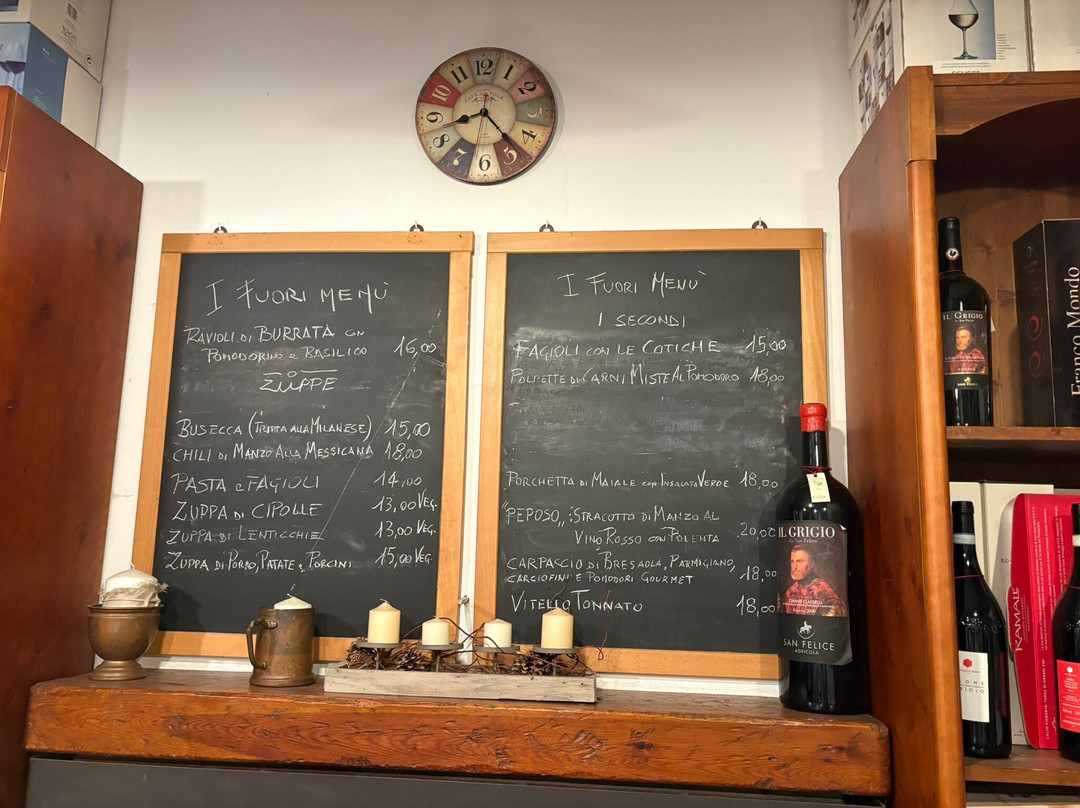 12
1
2
3
4
5
6
7
8
9
10
11
I FUORI MENÙ
RAVIOLI DI BURRATA CON
POMODORINO e BASILICO 16,00
ZUPPE
BUSECCA (TRIPPA ALLA MILANESE) 15,00
CHILI DI MANZO ALLA MESSICANA 18,00
PASTA e FAGIOLI 14,00
ZUPPA DI CIPOLLE 13,00 VEG.
ZUPPA DI LENTICCHIE 13,00 VEG.
ZUPPA DI PORRO, PATATE e PORCINI 15,00 VEG.
I FUORI MENÙ
I SECONDI
FAGIOLI CON LE COTICHE 15,00
POLPETTE DI CARNI MISTE AL POMODORO 18,00
PORCHETTA DI MAIALE CON INSALATA VERDE 18,00
"PEPOSO„: STRACOTTO DI MANZO AL
VINO ROSSO CON POLENTA 20,00
CARPACCIO DI BRESAOLA, PARMIGIANO,
CARCIOFINI e POMODORI GOURMET 18,00
VITELLO TONNATO 18,00
IL GRIGIO
da San Felice
CHIANTI CLASSICO
SAN FELICE
AGRICOLA
IL GRIGIO
SAN FELICE
Franco Mondo
KAMALEI